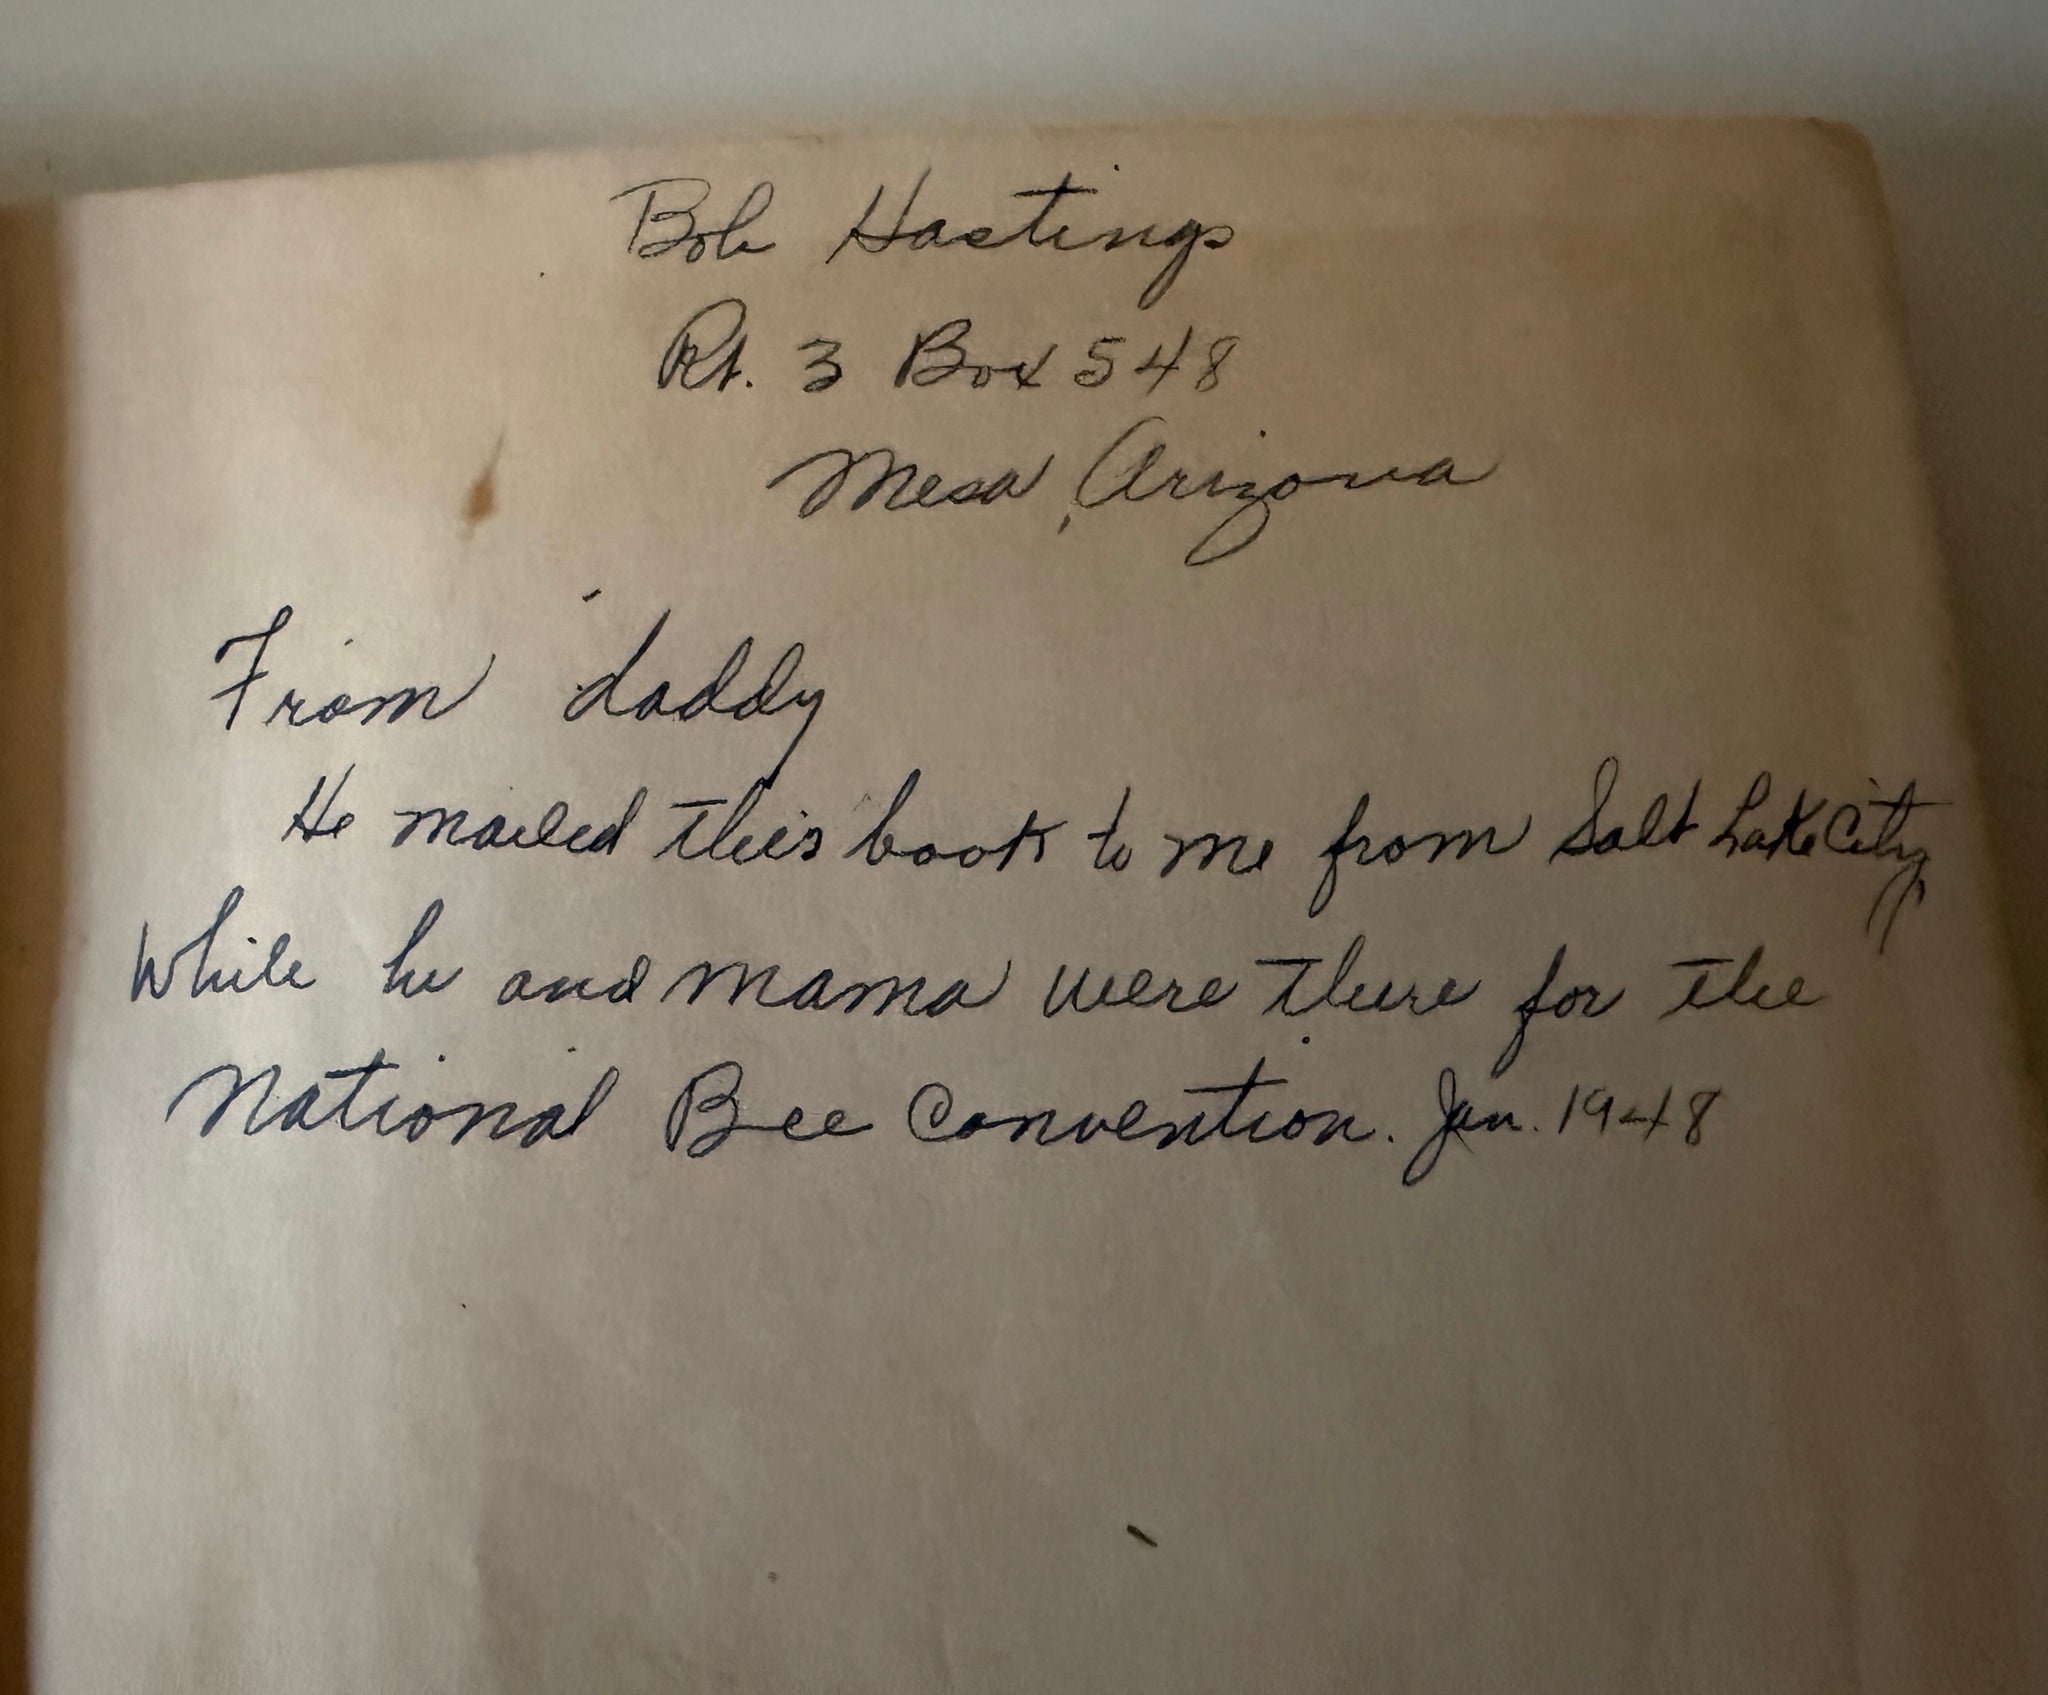 Bob Hastings
Rt. 3 Box 548
Mesa, Arizona
From daddy
He mailed this book to me from Salt Lake City,
While he and mama were there for the
National Bee Convention. Jan. 1948